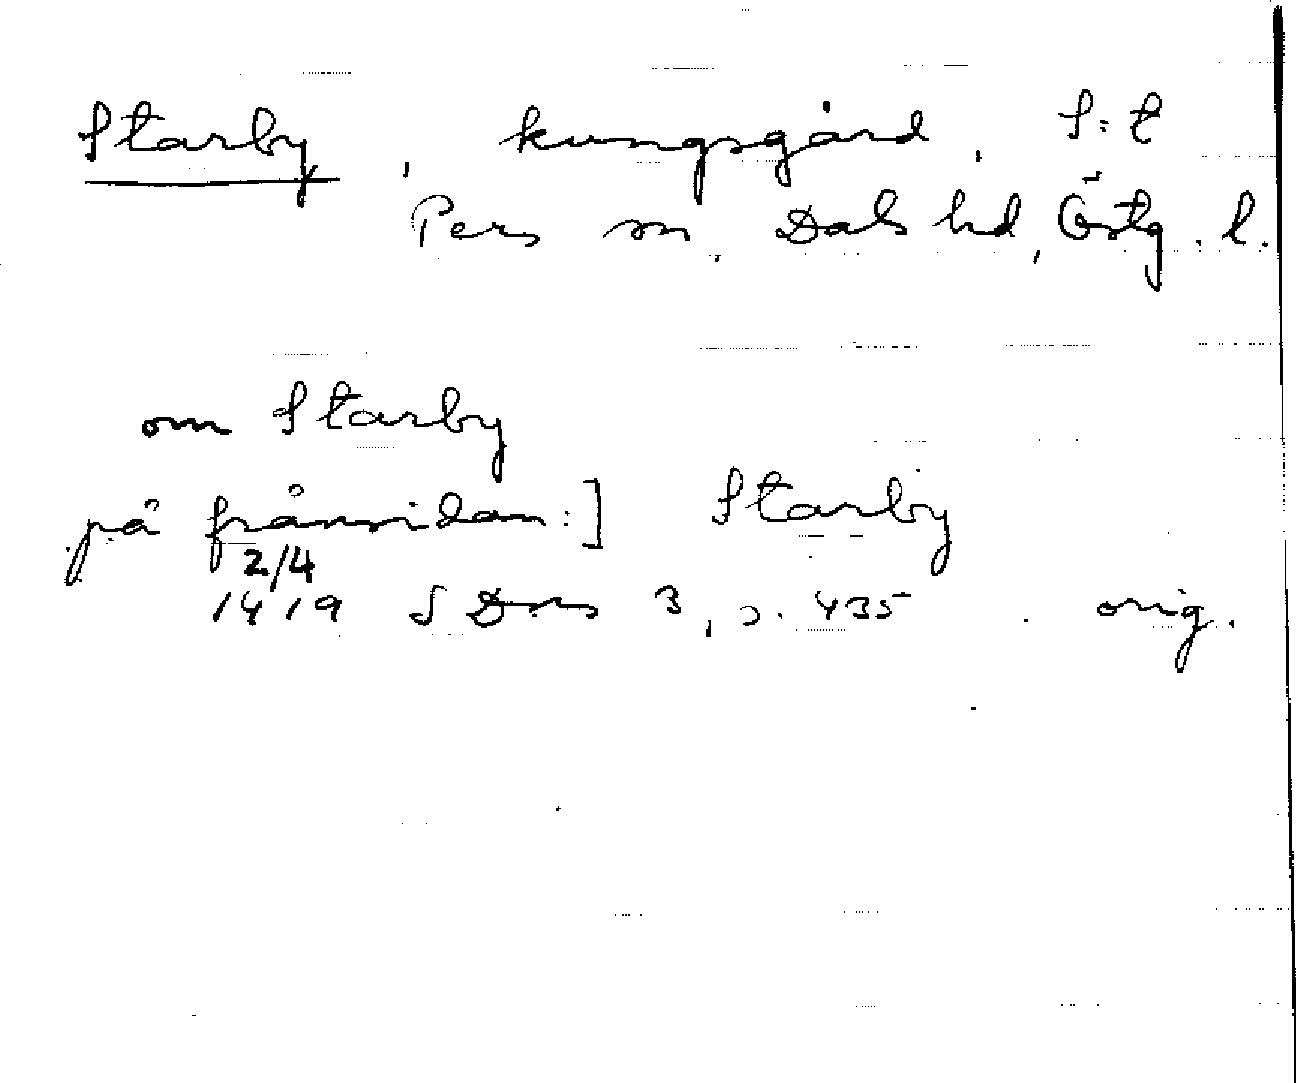 Starby, kungsgård, S:t
Pers sn. Dals hd, Östg. l.
om Starby
på frånsidan:] Starby
2/4
1419 SDns 3, s. 435 orig.